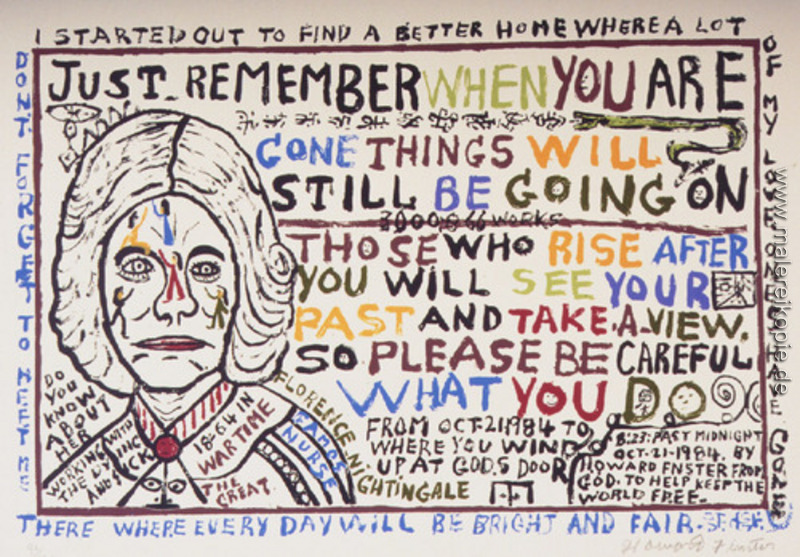 I STARTED OUT TO FIND A BETTER HOME WHERE A LOT
OF MY LOVE ONES HAVE GONE
DONT FORGET TO MEET ME
THERE WHERE EVERY DAY WILL BE BRIGHT AND FAIR.
JUST REMEMBER WHEN YOU ARE
GONE THINGS WILL
STILL BE GOING ON
3000.866 WORKS
THOSE WHO RISE AFTER
YOU WILL SEE YOUR
PAST AND TAKE.A.VIEW.
SO PLEASE BE CAREFUL
WHAT YOU DO
FROM OCT.21.1984 TO
WHERE YOU WIND
UP AT GOD.S DOOR
8:23: PAST MIDNIGHT
OCT-21-1984. BY
HOWARD FNSTER FROM
GOD. TO HELP KEEP THE
WORLD FREE-
DO
YOU
KNOW
ABOUT
HER
WORKING WITH
THE DYING
AND SICK
18-64 IN
WARTIME
THE
GREAT.
FAMOS
NURSE
FLORENCE NIGHTINGALE
Howard Finster
www.malereikopie.de